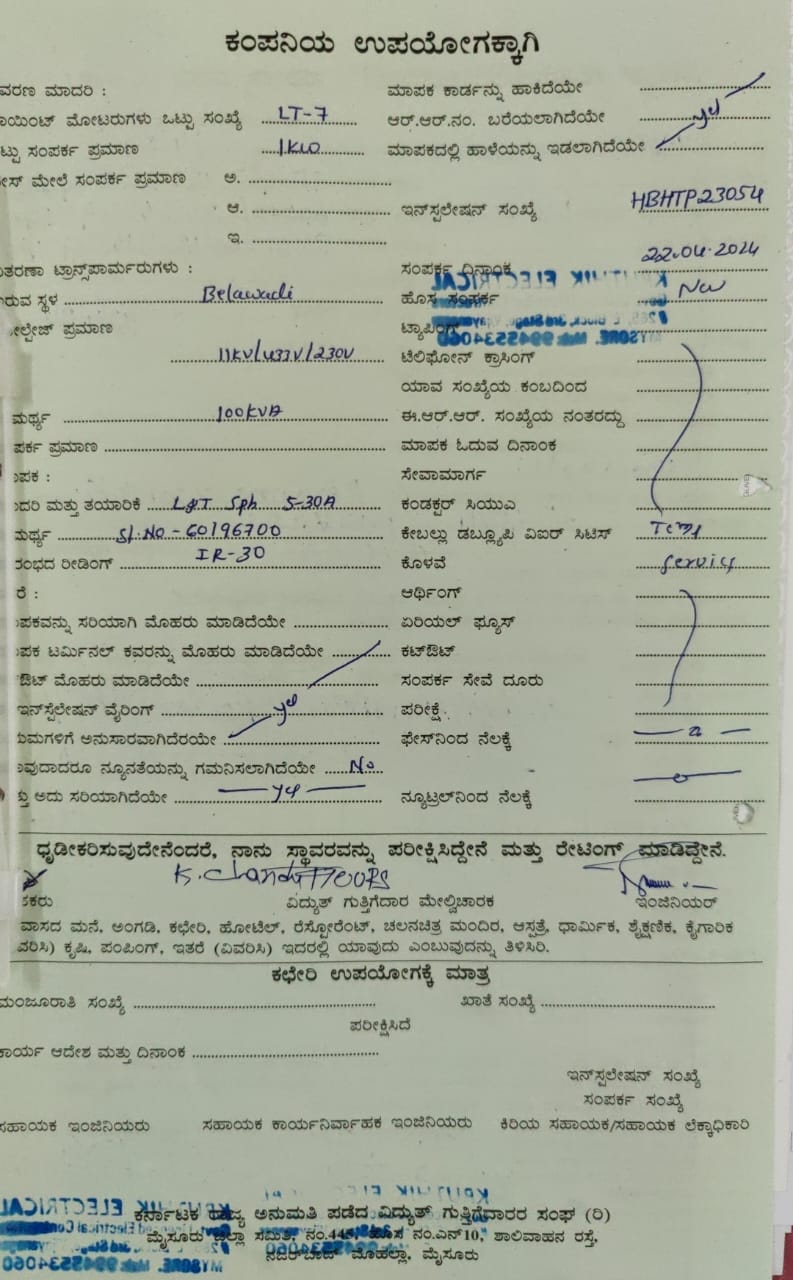 ಕಂಪನಿಯ ಉಪಯೋಗಕ್ಕಾಗಿ
ವರಣ ಮಾದರಿ : ಮಾಪಕ ಕಾರ್ಡನ್ನು ಹಾಕಿದೆಯೇ
ಾಯಿಂಟ್ ಮೋಟರುಗಳು ಒಟ್ಟು ಸಂಖ್ಯೆ LT-7 ಆರ್.ಆರ್.ನಂ. ಬರೆಯಲಾಗಿದೆಯೇ yes
ಟ್ಟು ಸಂಪರ್ಕ ಪ್ರಮಾಣ 1KW ಮಾಪಕದಲ್ಲಿ ಹಾಳೆಯನ್ನು ಇಡಲಾಗಿದೆಯೇ
ೇಸ್ ಮೇಲೆ ಸಂಪರ್ಕ ಪ್ರಮಾಣ ಅ.
ಆ. ಇನ್‌ಸ್ಪಲೇಷನ್ ಸಂಖ್ಯೆ HBHTP23054
ಇ.
ಿತರಣಾ ಟ್ರಾನ್ಸ್‌ಪಾರ್ಮರುಗಳು : ಸಂಪರ್ಕ ದಿನಾಂಕ 22.04.2024
ರುವ ಸ್ಥಳ Belawadi ಹೊಸ ಸಂಪರ್ಕ New
ೋಲ್ಟೇಜ್ ಪ್ರಮಾಣ ಟ್ಯಾಪಿಂಗ್
11KV/433V/230V ಟೆಲಿಫೋನ್ ಕ್ರಾಸಿಂಗ್
ಯಾವ ಸಂಖ್ಯೆಯ ಕಂಬದಿಂದ
ಮರ್ಥ್ಯ 100KVA ಈ.ಆರ್.ಆರ್. ಸಂಖ್ಯೆಯ ನಂತರದ್ದು
ಪರ್ಕ ಪ್ರಮಾಣ ಮಾಪಕ ಓದುವ ದಿನಾಂಕ
ಾಪಕ : ಸೇವಾಮಾರ್ಗ
ಾದರಿ ಮತ್ತು ತಯಾರಿಕೆ L&T Sph 5-30A ಕಂಡಕ್ಟರ್ ಸಿಯುಎ
ಮರ್ಥ್ಯ Sl.No - 60196700 ಕೇಬಲ್ಲು ಡಬ್ಲ್ಯೂಪಿ ವಿಐರ್ ಸಿಟಿಸ್ Temp
ರಂಭದ ರೀಡಿಂಗ್ IR-30 ಕೊಳವೆ Service
ರೆ : ಆರ್ಥಿಂಗ್
ಾಪಕವನ್ನು ಸರಿಯಾಗಿ ಮೊಹರು ಮಾಡಿದೆಯೇ ಏರಿಯಲ್ ಫ್ಯೂಸ್
ಾಪಕ ಟರ್ಮಿನಲ್ ಕವರನ್ನು ಮೊಹರು ಮಾಡಿದೆಯೇ ಕಟ್‌ಔಟ್
ಔಟ್ ಮೊಹರು ಮಾಡಿದೆಯೇ ಸಂಪರ್ಕ ಸೇವೆ ದೂರು
ಇನ್‌ಸ್ಪೆಲೇಷನ್ ವೈರಿಂಗ್ yes ಪರೀಕ್ಷೆ
ಿಯಮಗಳಿಗೆ ಅನುಸಾರವಾಗಿದೆರಯೇ ಫೇಸ್‌ನಿಂದ ನೆಲಕ್ಕೆ
ಾವುದಾದರೂ ನ್ಯೂನತೆಯನ್ನು ಗಮನಿಸಲಾಗಿದೆಯೇ No
ತ್ತು ಅದು ಸರಿಯಾಗಿದೆಯೇ yes ನ್ಯೂಟ್ರಲ್‌ನಿಂದ ನೆಲಕ್ಕೆ
ಧೃಡೀಕರಿಸುವುದೇನೆಂದರೆ, ನಾನು ಸ್ಥಾವರವನ್ನು ಪರೀಕ್ಷಿಸಿದ್ದೇನೆ ಮತ್ತು ರೇಟಿಂಗ್ ಮಾಡಿದ್ದೇನೆ.
ಕರು ವಿದ್ಯುತ್ ಗುತ್ತಿಗೆದಾರ ಮೇಲ್ವಿಚಾರಕ ಇಂಜಿನಿಯರ್
ವಾಸದ ಮನೆ, ಅಂಗಡಿ, ಕಛೇರಿ, ಹೋಟೆಲ್, ರೆಸ್ಟೋರೆಂಟ್, ಚಲನಚಿತ್ರ ಮಂದಿರ, ಆಸ್ಪತ್ರೆ, ಧಾರ್ಮಿಕ, ಶೈಕ್ಷಣಿಕ, ಕೈಗಾರಿಕ
ವರಿಸಿ) ಕೃಷಿ, ಪಂಪಿಂಗ್, ಇತರೆ (ವಿವರಿಸಿ) ಇದರಲ್ಲಿ ಯಾವುದು ಎಂಬುವುದನ್ನು ತಿಳಿಸಿರಿ.
ಕಛೇರಿ ಉಪಯೋಗಕ್ಕೆ ಮಾತ್ರ
ಮಂಜೂರಾತಿ ಸಂಖ್ಯೆ ಖಾತೆ ಸಂಖ್ಯೆ
ಪರೀಕ್ಷಿಸಿದೆ
ಕಾರ್ಯ ಆದೇಶ ಮತ್ತು ದಿನಾಂಕ
ಇನ್‌ಸ್ಪಲೇಷನ್ ಸಂಖ್ಯೆ
ಸಂಪರ್ಕ ಸಂಖ್ಯೆ
ಸಹಾಯಕ ಇಂಜಿನಿಯರು ಸಹಾಯಕ ಕಾರ್ಯನಿರ್ವಾಹಕ ಇಂಜಿನಿಯರು ಕಿರಿಯ ಸಹಾಯಕ/ಸಹಾಯಕ ಲೆಕ್ಕಾಧಿಕಾರಿ
ಕರ್ನಾಟಕ ರಾಜ್ಯ ಅನುಮತಿ ಪಡೆದ ವಿದ್ಯುತ್ ಗುತ್ತಿಗೆದಾರರ ಸಂಘ (ರಿ)
ಮೈಸೂರು ಜಿಲ್ಲಾ ಸಮಿತಿ, ನಂ.445, ಹೊಸ ನಂ.ಎನ್10, ಶಾಲಿವಾಹನ ರಸ್ತೆ,
ನಜರ್‌ಬಾದ್ ಮೊಹಲ್ಲಾ, ಮೈಸೂರು